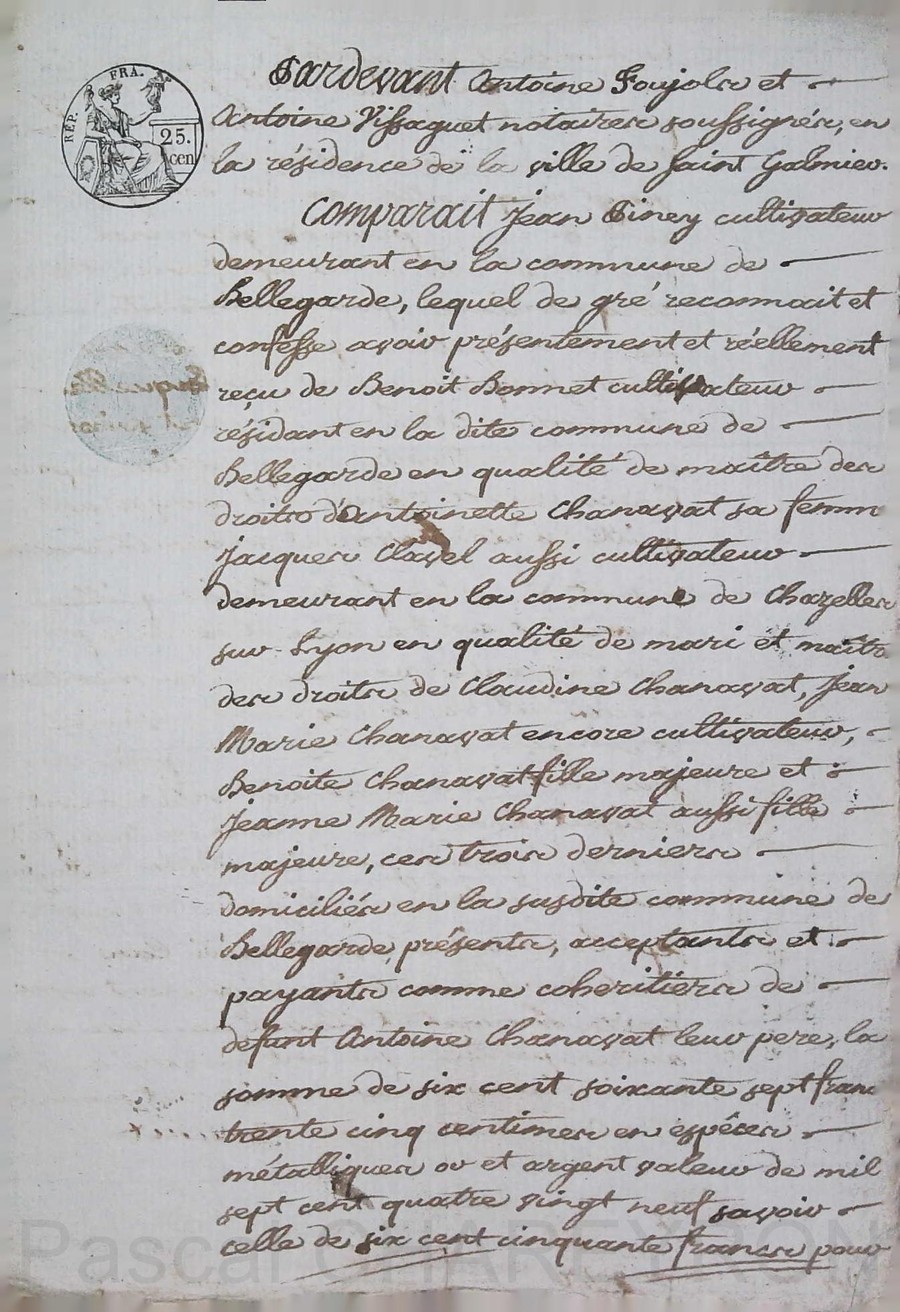 RÉP. FRA.
25.
cen
Pardevant Antoine Foujols et
Antoine Vissaguet notaires soussignés, en
la résidence de la ville de Saint Galmier.
Comparait Jean Piney cultivateur
demeurant en la commune de
Bellegarde, lequel de gré reconnait et
confesse avoir présentement et réellement
reçu de Benoit Bonnet cultivateur
résidant en la dite commune de
Bellegarde en qualité de maître des
droits d'Antoinette Chanavat sa femm
Jacques Clavel aussi cultivateur
demeurant en la commune de Chazelles
sur Lyon en qualité de mari et maître
des droits de Claudine Chanavat, Jean
Marie Chanavat encore cultivateur,
Benoite Chanavat fille majeure et
Jeanne Marie Chanavat aussi fille
majeure, ces trois derniers
domiciliés en la susdite commune de
Bellegarde, présents, acceptants et
payants comme coheritiers de
defunt Antoine Chanavat leur pere, la
somme de six cent soixante sept franc
trente cinq centimes en espéces
métalliques or et argent valeur de mil
sept cent quatre vingt neuf savoir
celle de six cent cinquante francs pour
Pascal CHAREYRON